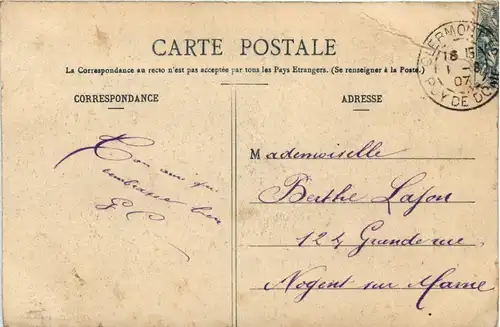 CARTE POSTALE
La Correspondance au recto n'est pas acceptée par tous les Pays Etrangers. (Se renseigner à la Poste.)
CORRESPONDANCE
ADRESSE
Ton ami qui
embrasse bien
G
Mademoiselle
Berthe Lafon
124 Grande rue
Nogent sur Marne
CLERMONT
18 15
1
07
PUY DE DOME